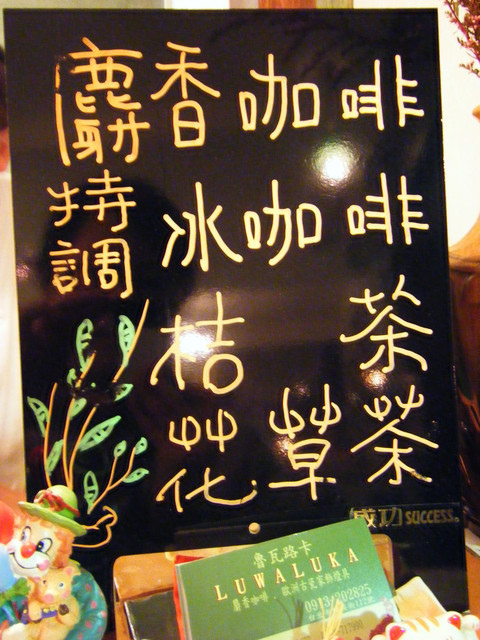 麝香咖啡
特調
冰咖啡
桔茶
花草茶
成功 SUCCESS
魯瓦路卡
LUWALUKA
麝香咖啡．歐洲古瓷家飾燈具
0913-202825